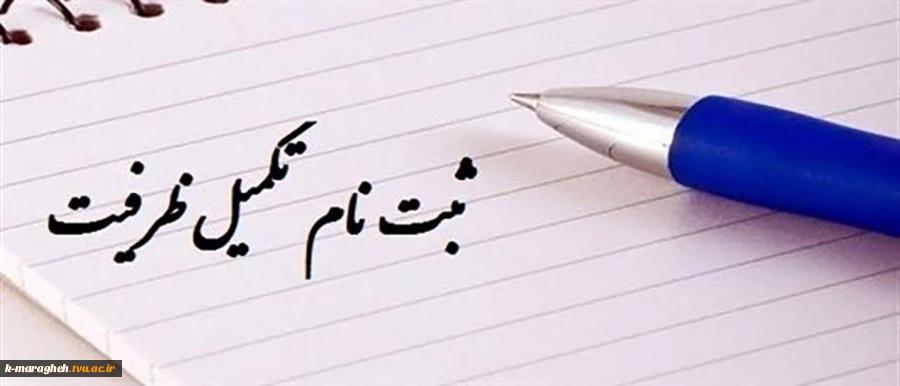 ثبت نام تکمیل ظرفیت
k-maragheh.tvu.ac.ir